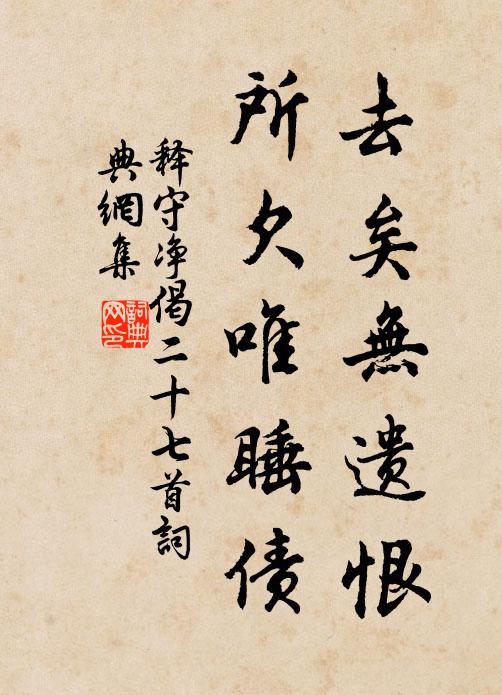 去矣無遺恨
所欠唯睡債
释守净偈二十七首詞
典網集
詞典
网印